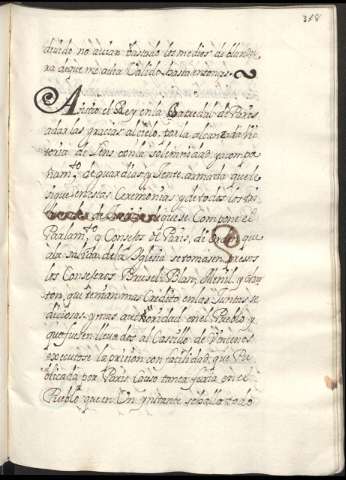 318
diendo no avian bastado los medios de blandu
ra de que me avia Valido hasta entonces.
Asistio el Rey en la Cathedral de Paris
a dar las gracias al cielo por la alcanzada Vi
toria de Lens con la solemnidad, y acompa
ñam.to de guardias, y gente armada que le
sigue en estas Ceremonias, y de todos los Tri
de que se Compone el
Parlam.to y Consejos de Paris, di orden que
a la salida de la Iglesia se tomasen presos
los Consejeros Brusel, Blan, Menil, y Char
ton, que tenian mas Credito en las Juntas se
diciosas, y mas authoridad en el Pueblo, y
que fuesen llevados al Castillo de Vincenes
executose la prision con facilidad, que Pu
blicada por Paris Causo tanta furia en el
Pueblo, que en Un ynstante se hallo todo